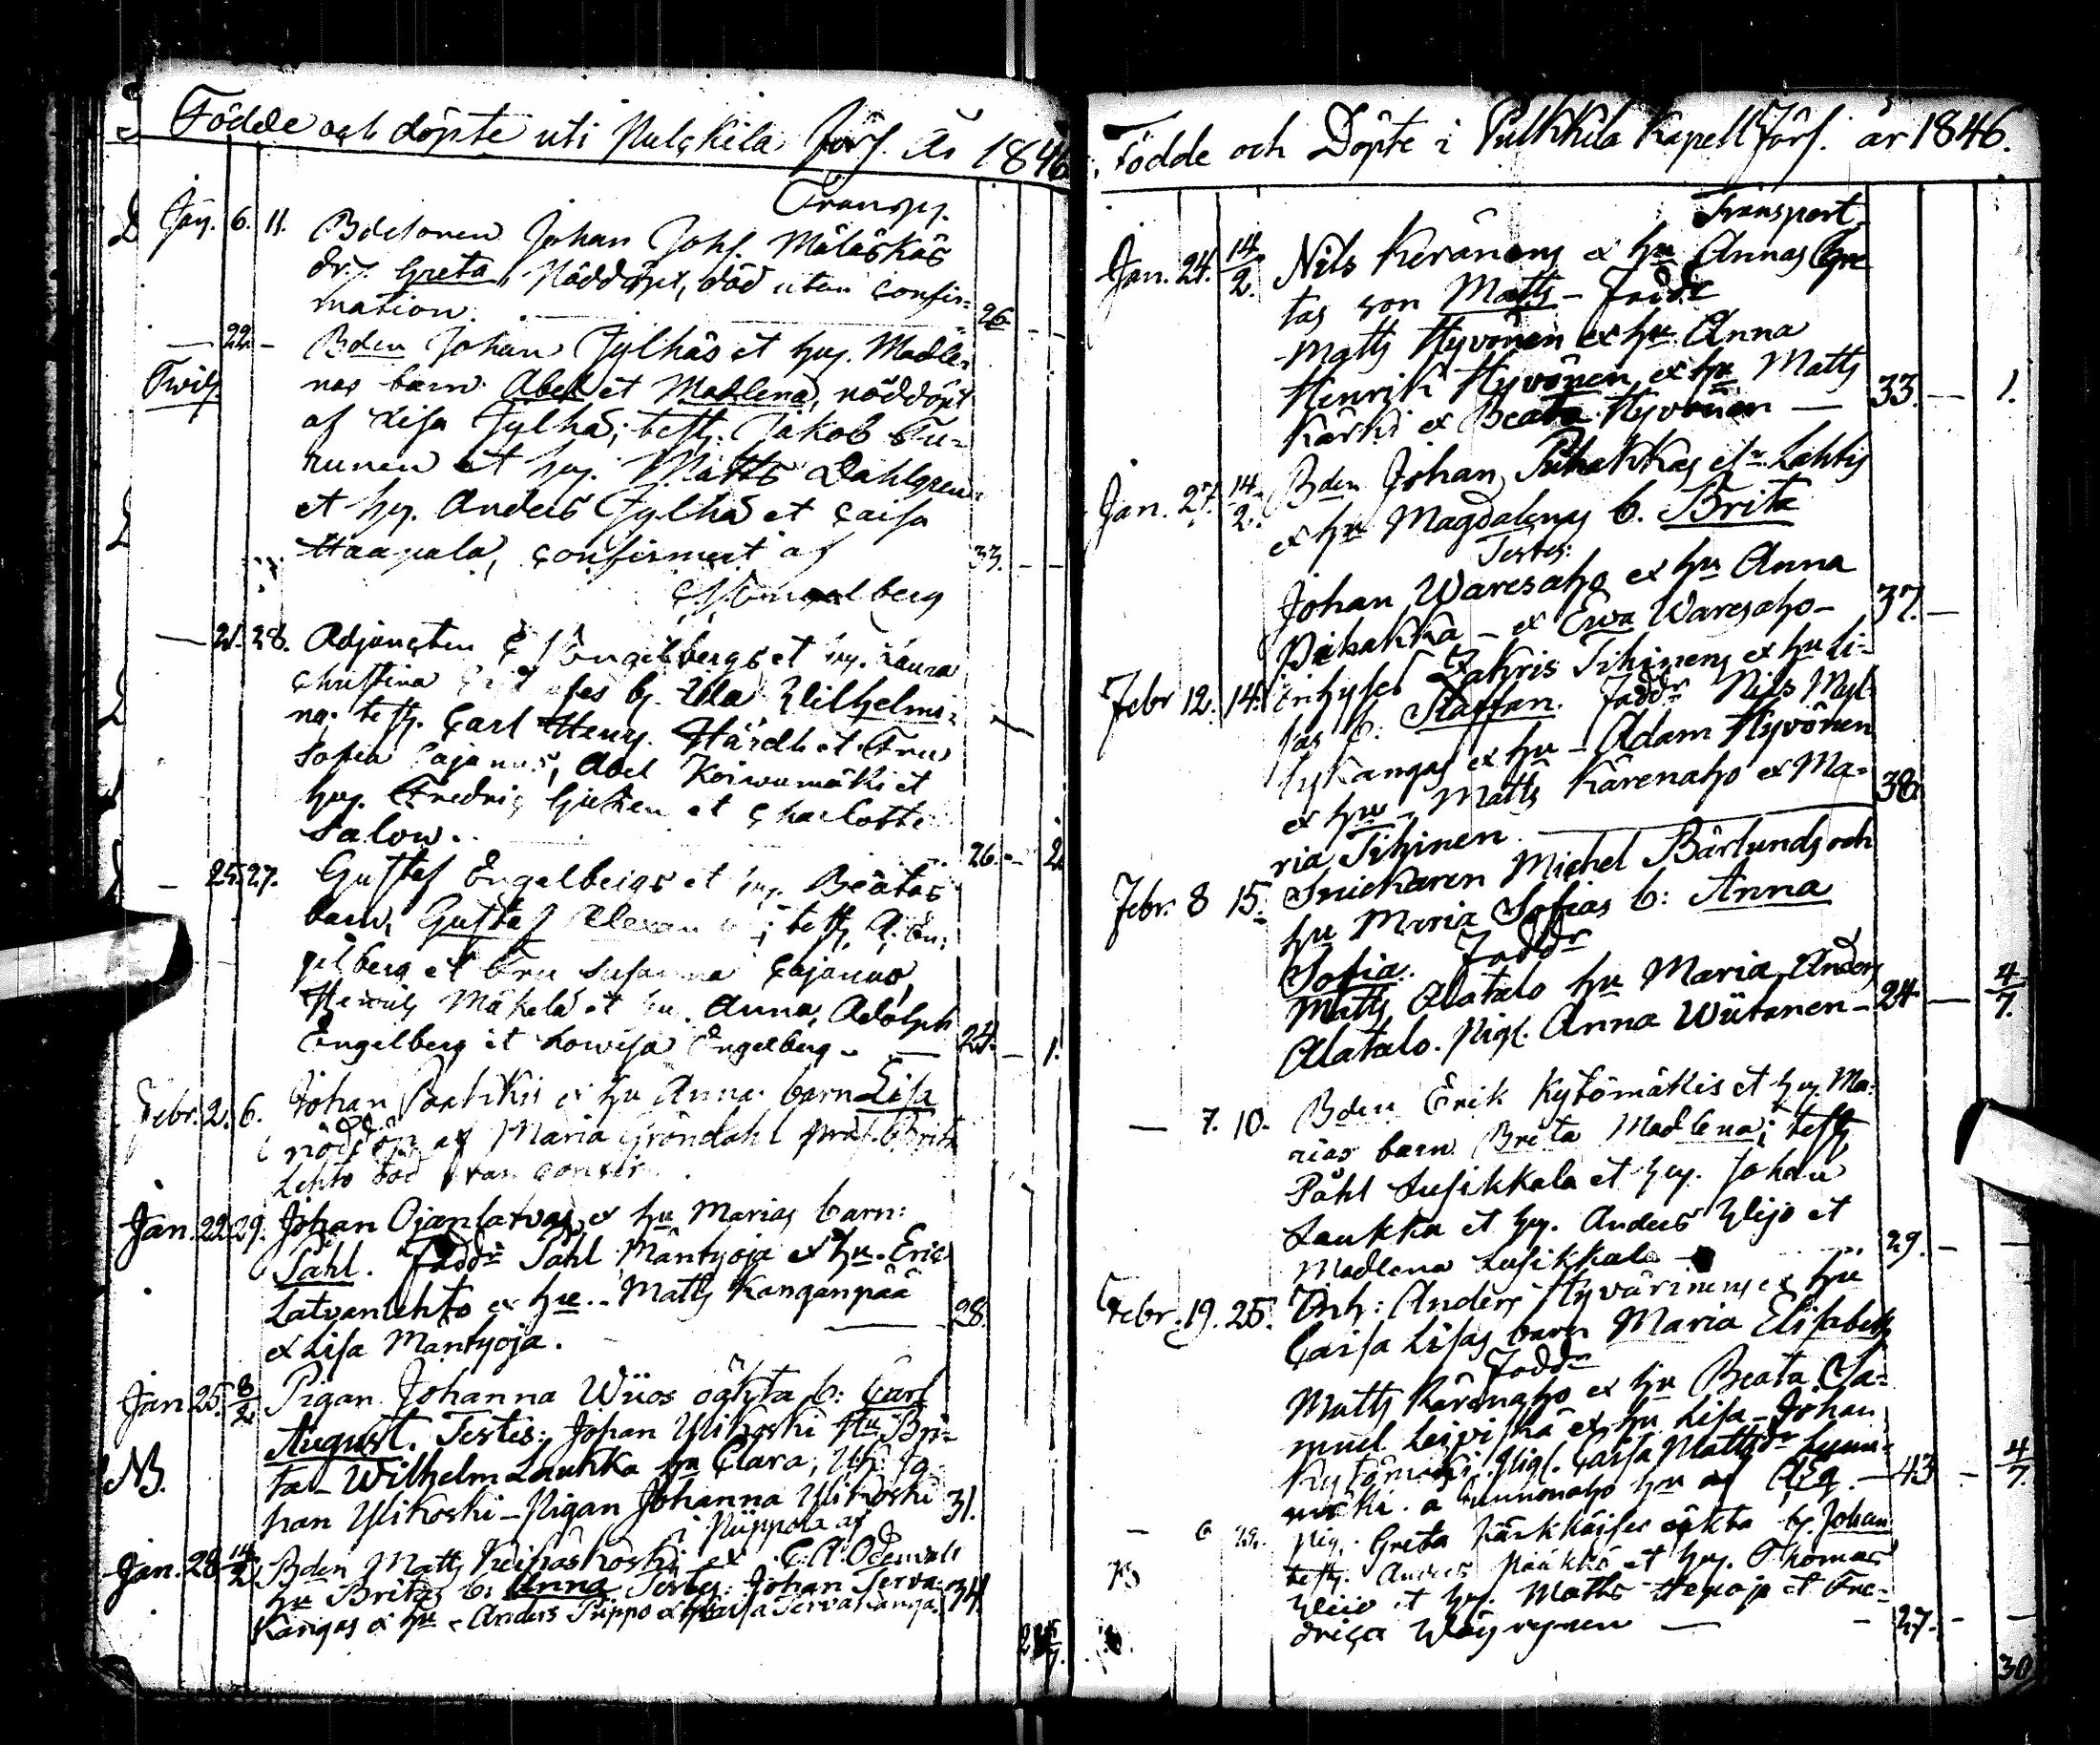 Födde och döpte uti Pulckila Förs. År 1846
Transp.
Jan. 6. 11. Bdesonen Johan Johs. Mäläskäs
dr. Greta, Nöddöpt, död utan Confir=
mation. 26
— 22. - Bden Johan Jylhäs et huj. Madle=
Twil. nas barn Abel et Madlena, nöddöpt
af Lisa Jylhä; test. Jakob Tu=
runen et huj. Matts Dahlgren
et huj. Anders Jylhä et Caisa
Haapala, confirmert af 33. - -
Engelberg
— 21. 28. Adjuncten Engelbergs et huj. Laura
Christina b. Ula Wilhelmi=
na. test. Carl Henr. Härdh et Fru
Sofia Cajanus, Abel Koiwumäki et
huj. Fredric et Charlotte
Salow. 26. - 2
- 25. 27. Gustaf Engelbergs et huj. Beatas
barn, Gustaf test. A. En=
gelberg et Fru Susanna Cajanus,
Henric Mäkelä et hu. Anna, Adolph
Engelberg et Lowisa Engelberg - 24. - 1.
Febr. 2. 6. Johan et hu Anna barn Lisa
nöddöp. af Maria Gröndahl Brita
Lehto död utan confir.
Jan. 22. 29. Johan Ojanlatvas et hu Marias barn:
Påhl. Faddr Påhl Mäntyoja et hu. Eric
Latvanlehto et hu.. Matts Kanganpää 28.
et Lisa Mantyoja.
Jan. 25. 8/2. Pigan Johanna Wiios oäkta b: Carl
August. Testes: Johan Ylikoski Hu Bri=
NB. ta - Wilhelm Laukka hu Clara, Jo=
han Ylikoski - Pigan Johanna Ylikoski 31.
i Piippola af
Jan. 28. 14/2 Bden Matts Keihäskoski et C. A. Odenvall
hu Britas b: Anna Testes: Johan Terva=
kangas et hu - Anders Piippo et Caisa Tervakangas. 34.
Födde och Döpte i Pulkkila Kapell Förs. år 1846.
Transport
Jan. 24. 14/2. Nils Keränens et hu Annas Gre
tas son Matts - Fadd.
Matts Hyvönen et hu Anna
Henrik Hyvönen et hu Matts
Kärki et Beata Hyvönen — 33. — 1.
Jan. 27. 14/2. Bden Johan Pihakkas elr. Lahtis
et hu Magdalenas b. Brita
Testes:
Johan Waresaho et hu Anna
Pihakka - et Ewa Waresaho - 37. —
Febr 12. 14. Inhyses Zakris Tihinens et hu Li=
sas b: Staffan. Faddr Nils Myl=
lykangas et hu - Adam Hyvönen
et hu - Matts Kärenaho et Ma= 38.
ria Tihinen.
Febr. 8 15. Snickaren Michel Bärlunds och
hu Maria Sofias b: Anna
Sofia. Faddr
Matts Alatalo hu Maria, Anders
Alatalo. Pigl. Anna Wiitanen - 24 — 4/7.
— 7. 10. Bden Erik Kytömäkis et huj. Ma=
rias barn Brita Madlena; test.
Påhl Lusikkala et huj. Johan
Laukka et huj. Anders Weijo et
Madlena Lusikkala - 29. — —
Febr. 19. 25. Inh: Anders Hyvärinens et hu
Caisa Lisas barn Maria Elisabeth
Faddr
Matts Kärenaho et hu Beata Sa=
muel Leiviskä et hu Lisa - Johan
Kytömäki. Pigl. Caisa Mattsdr Lumi=
mäki. 43 - 4/7.
— 6 Pig. Greta Kärkkäises oäkta b. Johan
test. Anders Pääkkö et huj. Thomas
Weijo et huj. Matts Hepoja et Fre=
drica Wäyrynen — 27. - —
30